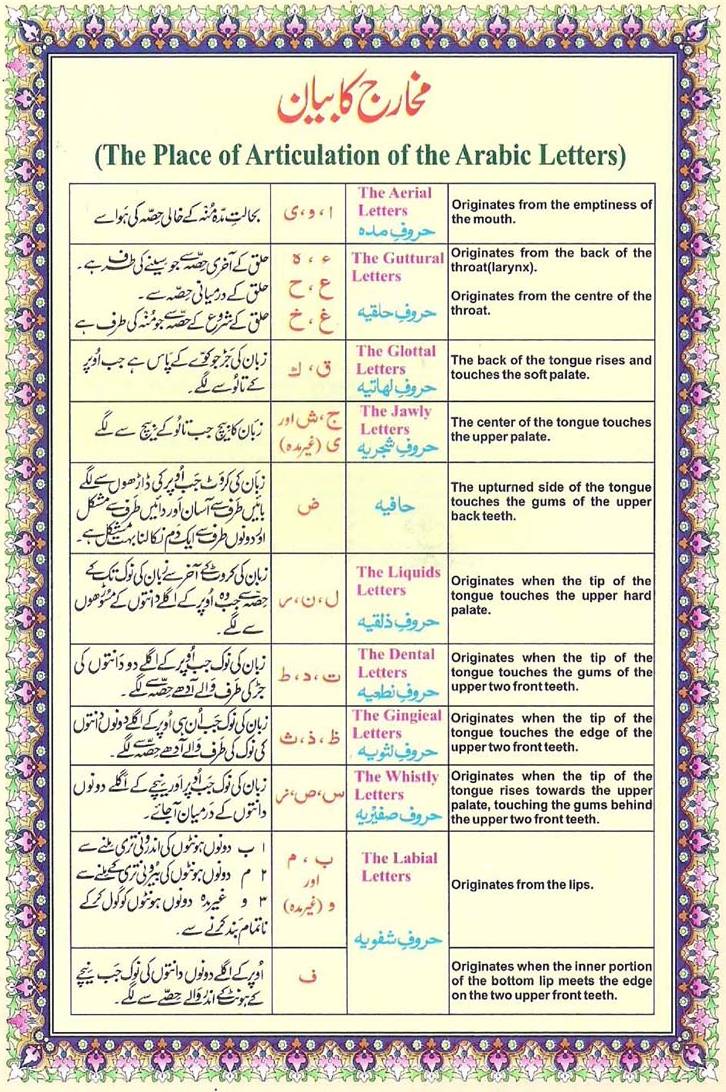 مخارج کا بیان
(The Place of Articulation of the Arabic Letters)
بحالتِ مدّہ مُنہ کے خالی حِصّہ کی ہَوا سے
ا ، و ، ی
The Aerial
Letters
حروفِ مدہ
Originates from the emptiness of
the mouth.
حلق کے آخری حِصّہ سے جو سینے کی طرف ہے۔
حلق کے درمیانی حِصّہ سے۔
حلق کے شروع کے حصّہ سے جو مُنہ کی طرف ہے
ء ، ہ
ع ، ح
غ ، خ
The Guttural
Letters
حروفِ حلقیہ
Originates from the back of the
throat(larynx).
Originates from the centre of the
throat.
زبان کی جَڑ جو کوّے کے پاس ہے جب اُوپر
کے تالُو سے لگے۔
ق ، ك
The Glottal
Letters
حروفِ لھاتیه
The back of the tongue rises and
touches the soft palate.
زبان کا بیچ جب تالُو کے بیچ سے لگے
ج ، ش اور
ی (غیرمدہ)
The Jawly
Letters
حروفِ شجریه
The center of the tongue touches
the upper palate.
زبَان کی کروَٹ جَب اُوپر کی ڈاڑھوں سے لگے
بائیں طرف سے آسان اور دائیں طرف سے مشکل
اور دونوں طرف سے ایک دَم نِکالنا بہت مشکل ہے۔
ض
حافیه
The upturned side of the tongue
touches the gums of the upper
back teeth.
زبان کی کروٹ کے آخر سے زبان کی نوک تک کے
حصّہ سے جب وہ اُوپر کے اگلے دانتوں کے مسُوڑھوں
سے لگے۔
ل ، ن ، ر
The Liquids
Letters
حروفِ ذلقیه
Originates when the tip of the
tongue touches the upper hard
palate.
زبان کی نوک جب اُوپر کے اگلے دو دانتوں کی
جڑ کی طرف والے آدھے حصّہ سے لگے۔
ت ، د ، ط
The Dental
Letters
حروفِ نطعیه
Originates when the tip of the
tongue touches the gums of the
upper two front teeth.
زبان کی نوک جَب اُن ہی اُوپر کے اگلے دونوں دانتوں
کی نوک کی طرف والے آدھے حصّہ سے لگے۔
ظ ، ذ ، ث
The Gingical
Letters
حروفِ لثویه
Originates when the tip of the
tongue touches the edge of the
upper two front teeth.
زبان کی نوک جَب اُوپر اور نیچے کے اگلے دونوں
دانتوں کے درمیان آجائے۔
س ، ص ، ز
The Whistly
Letters
حروفِ صفیریه
Originates when the tip of the
tongue rises towards the upper
palate, touching the gums behind
the upper two front teeth.
۱ ب دونوں ہونٹوں کی اندرونی تری سے
۲ م دونوں ہونٹوں کی بیرونی تری سے
۳ و غیرمدہ دونوں ہونٹوں کو گول کرکے
ناتمام بَند کرنے سے۔
ب ، م
اور
و (غیرمدہ)
The Labial
Letters
حروفِ شفویه
Originates from the lips.
اُوپر کے اگلے دونوں دانتوں کی نوک جَب نیچے
کے ہونٹ کے اندر والے حِصّے سے لگے۔
ف
Originates when the inner portion
of the bottom lip meets the edge
on the two upper front teeth.